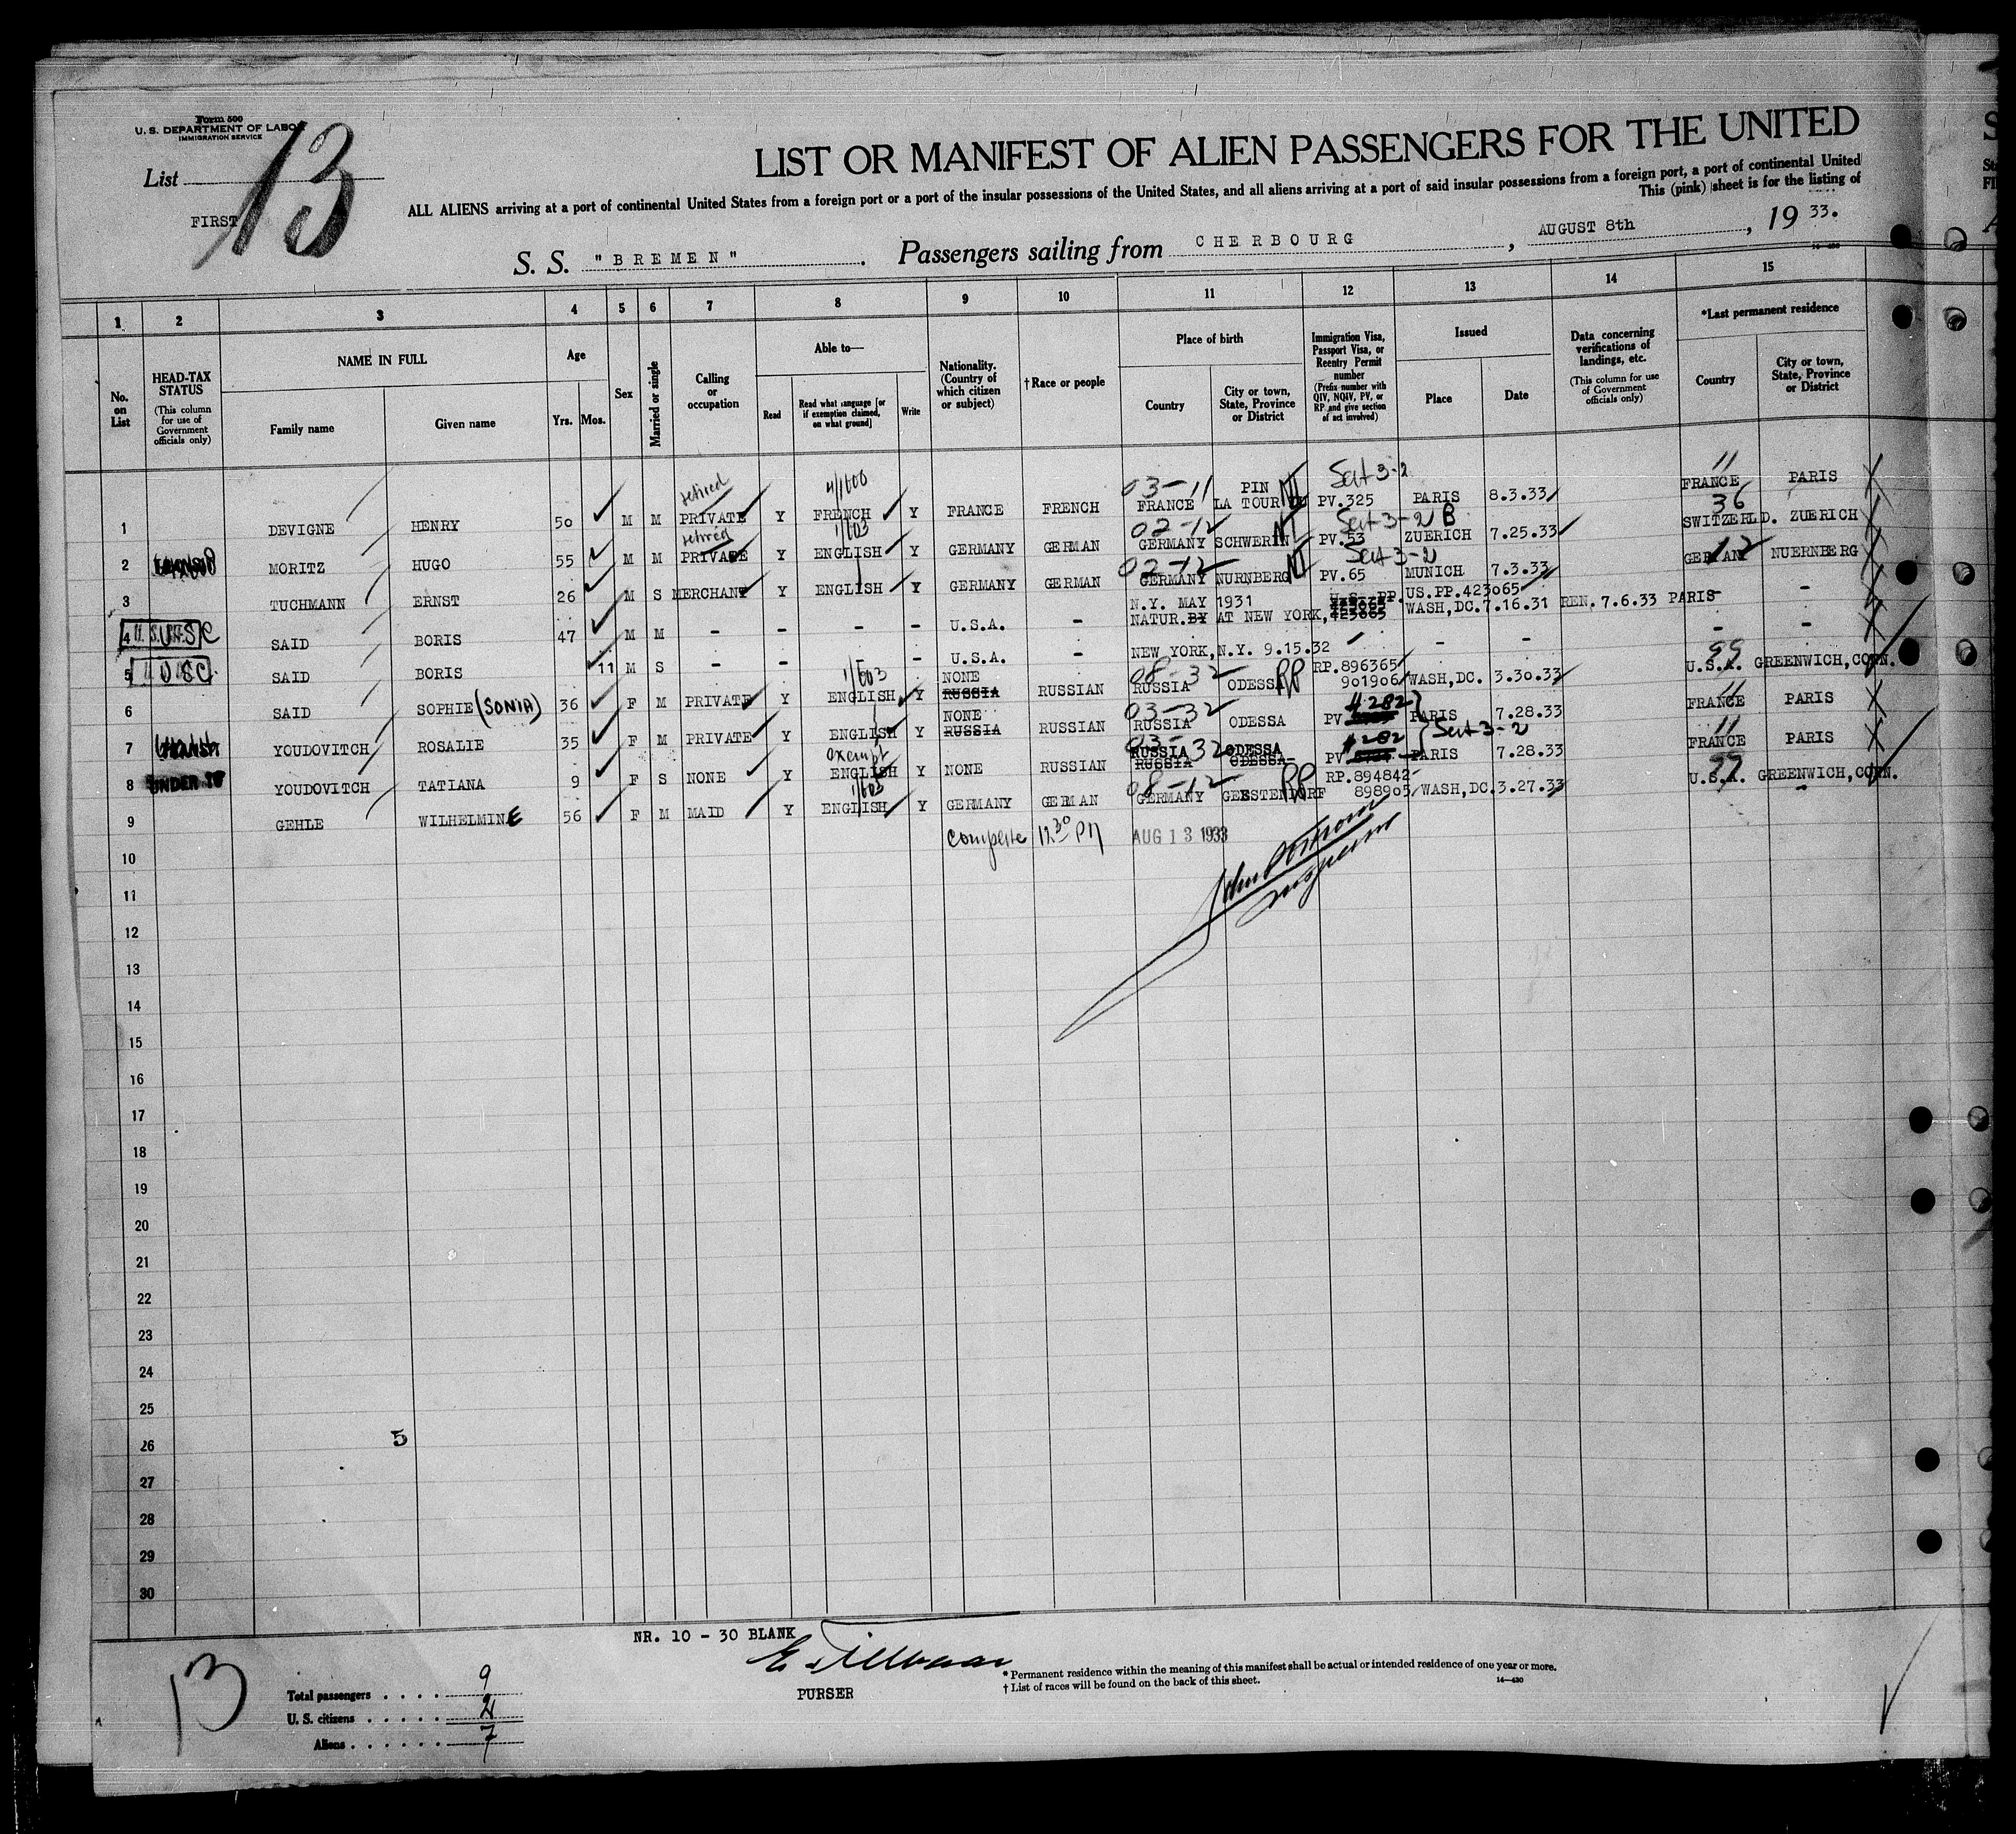 Form 500
U. S. DEPARTMENT OF LABOR
IMMIGRATION SERVICE
List 13
FIRST
LIST OR MANIFEST OF ALIEN PASSENGERS FOR THE UNITED
ALL ALIENS arriving at a port of continental United States from a foreign port or a port of the insular possessions of the United States, and all aliens arriving at a port of said insular possessions from a foreign port, a port of continental United
This (pink) sheet is for the listing of
S. S. "BREMEN". Passengers sailing from CHERBOURG, AUGUST 8th, 19 33.
1 2 3 4 5 6 7 8 9 10 11 12 13 14 15
No. on List
HEAD-TAX STATUS
(This column for use of Government officials only)
NAME IN FULL
Family name Given name
Age
Yrs. Mos.
Sex
Married or single
Calling or occupation
Able to—
Read
Read what language [or if exemption claimed, on what ground]
Write
Nationality. (Country of which citizen or subject)
†Race or people
Place of birth
Country
City or town, State, Province or District
Immigration Visa, Passport Visa, or Reentry Permit number
(Prefix number with QIV, NQIV, PV, or RP and give section of act involved)
Issued
Place Date
Data concerning verifications of landings, etc.
(This column for use of Government officials only)
*Last permanent residence
Country
City or town, State, Province or District
retired 03-11 PIN Sect 3-2 11
1 DEVIGNE HENRY 50 M M PRIVATE Y FRENCH Y FRANCE FRENCH FRANCE LA TOUR DU PV.325 PARIS 8.3.33 FRANCE PARIS
retired 1/603 02-12 Sect 3-2 B 36
2 MORITZ HUGO 55 M M PRIVATE Y ENGLISH Y GERMANY GERMAN GERMANY SCHWERIN PV.53 ZUERICH 7.25.33 SWITZERLD. ZUERICH
02-12 Sect 3-2 12
3 TUCHMANN ERNST 26 M S MERCHANT Y ENGLISH Y GERMANY GERMAN GERMANY NURNBERG PV.65 MUNICH 7.3.33 GERMANY NUERNBERG
N.Y. MAY 1931 U.S. PP. US.PP.423065
4 USC SAID BORIS 47 M M - - - - U.S.A. - NATUR. BY AT NEW YORK, 423065 WASH,DC.7.16.31 REN. 7.6.33 PARIS - -
5 USC SAID BORIS 11 M S - - - - U.S.A. - NEW YORK,N.Y. 9.15.32 - - - -
1/603 NONE 08-32 RP RP.896365 99
6 SAID SOPHIE (SONIA) 36 F M PRIVATE Y ENGLISH Y RUSSIA RUSSIAN RUSSIA ODESSA 901906 WASH,DC. 3.30.33 U.S.A. GREENWICH,CONN.
NONE 03-32 #282 11
7 YOUDOVITCH ROSALIE 35 F M PRIVATE Y ENGLISH Y RUSSIA RUSSIAN RUSSIA ODESSA PV PARIS 7.28.33 FRANCE PARIS
exempt 03-32 RUSSIA ODESSA #282 Sect 3-2 11
8 UNDER 16 YOUDOVITCH TATIANA 9 F S NONE Y ENGLISH Y NONE RUSSIAN RUSSIA ODESSA PV PARIS 7.28.33 FRANCE PARIS
1/603 08-12 RP RP.894842 99
9 GEHLE WILHELMINE 56 F M MAID Y ENGLISH Y GERMANY GERMAN GERMANY GEESTENDORF 898905 WASH,DC.3.27.33 U.S.A. GREENWICH,CONN.
10 complete 12 30 PM AUG 13 1933
11
Inspector
12
13
14
15
16
17
18
19
20
21
22
23
24
25
26 5
27
28
29
30
NR. 10 - 30 BLANK
PURSER
* Permanent residence within the meaning of this manifest shall be actual or intended residence of one year or more.
† List of races will be found on the back of this sheet.
14—430
13
Total passengers . . . . 9
U. S. citizens . . . . . 2
Aliens . . . . . . 7